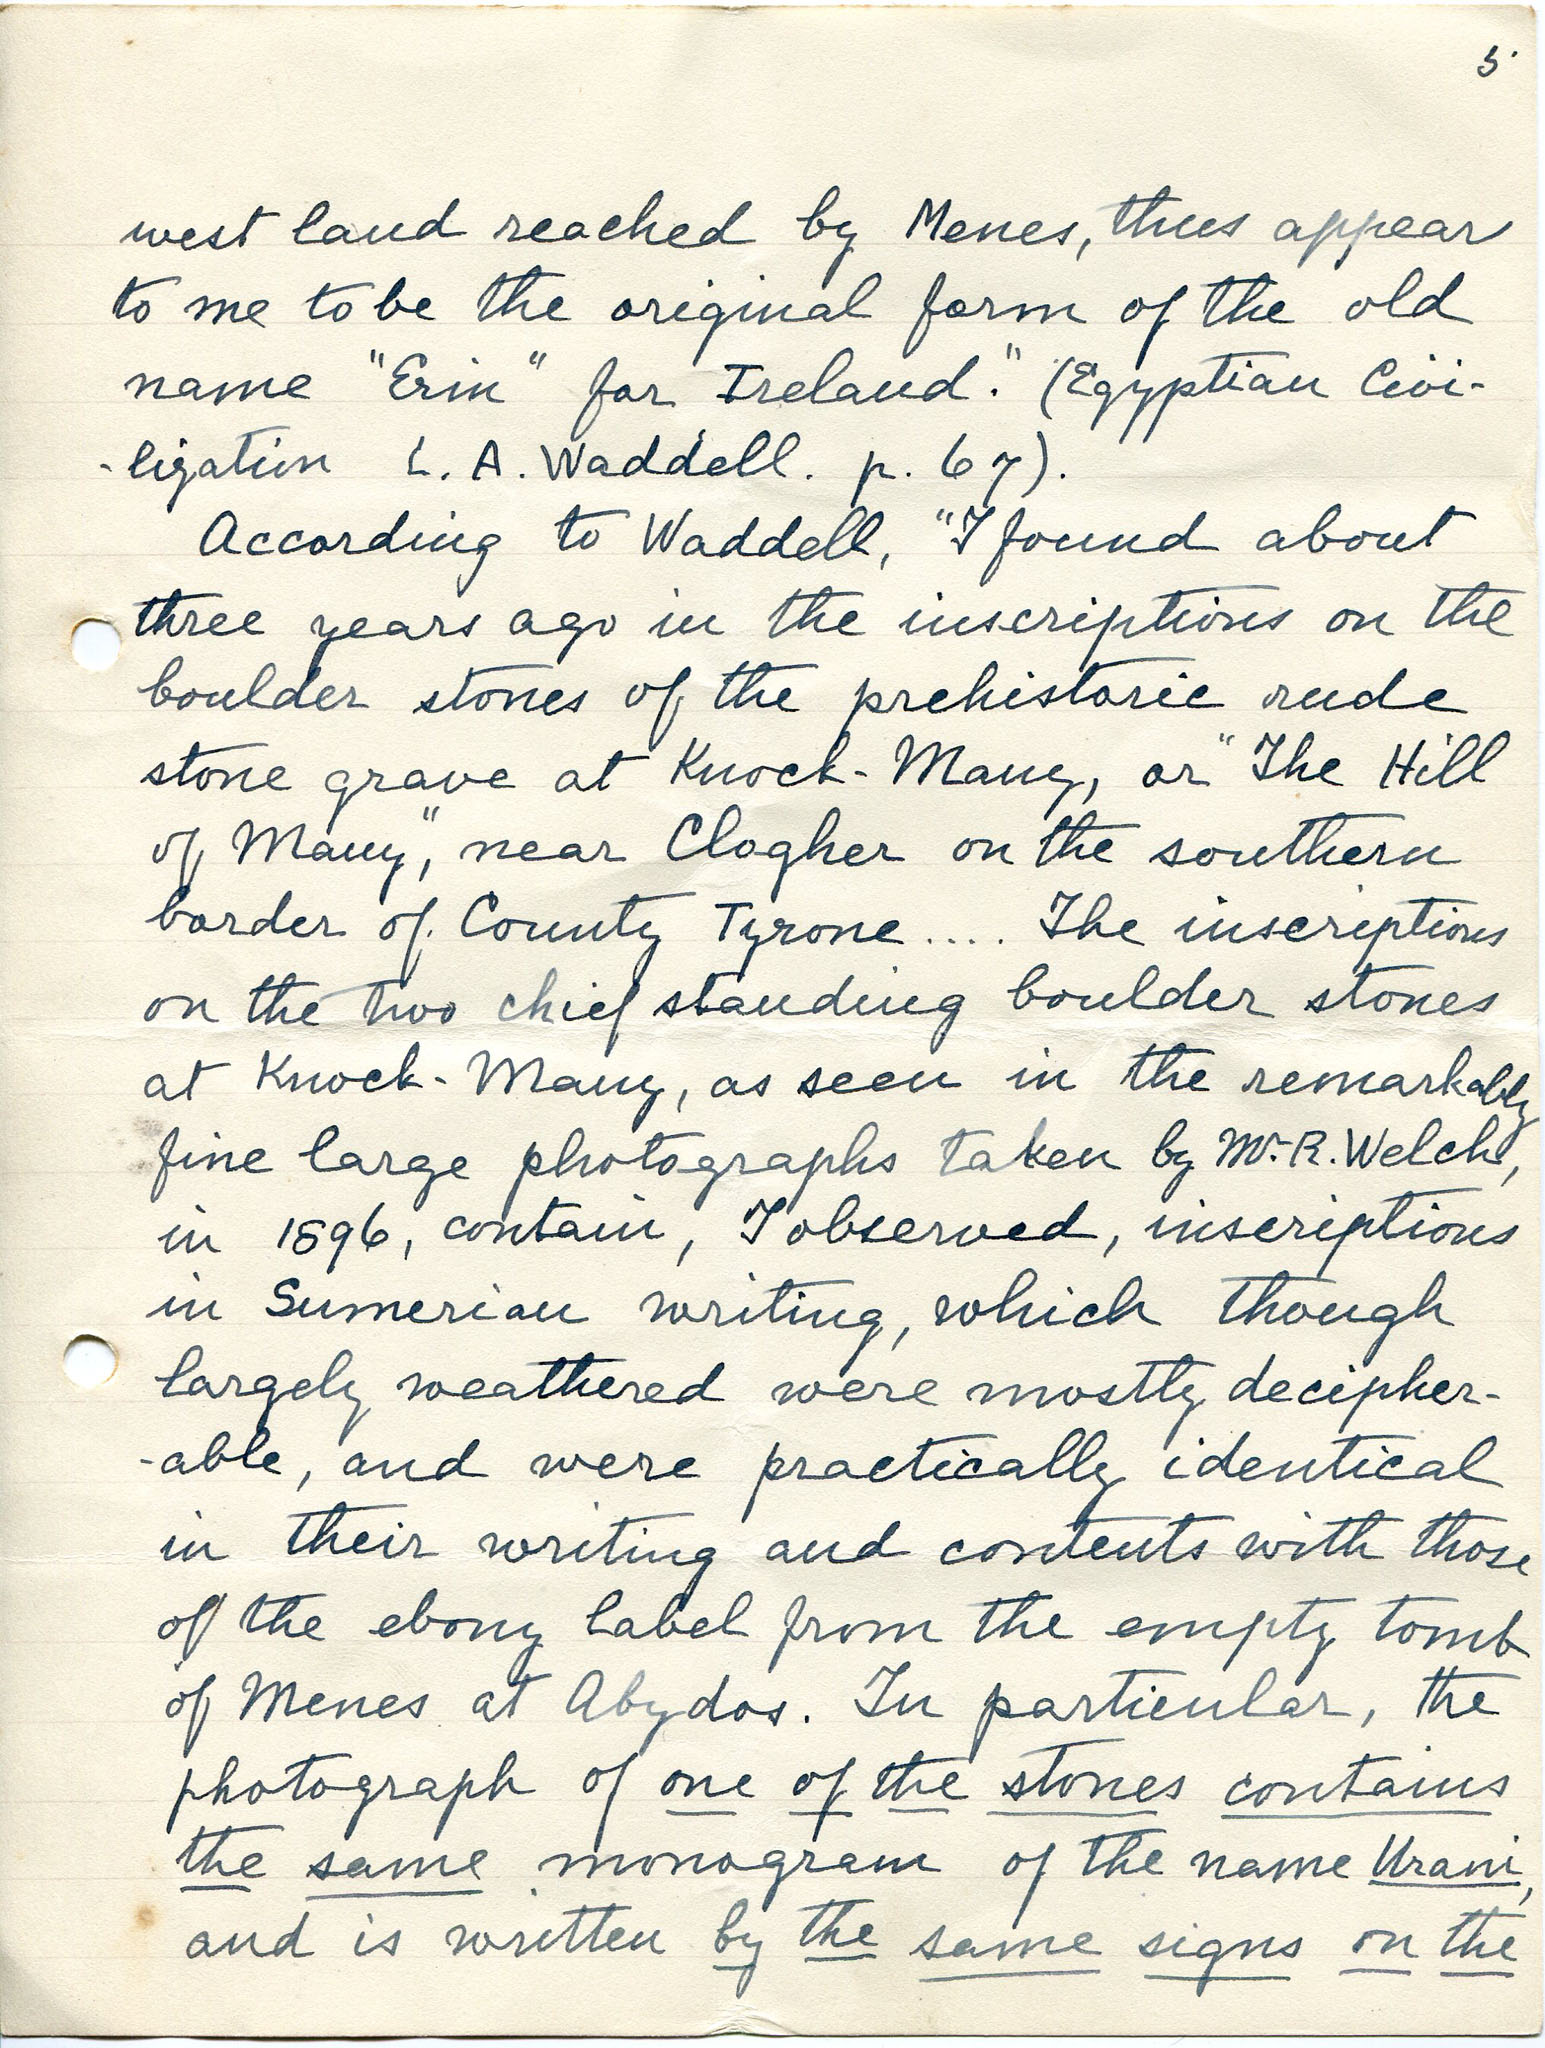 5.
west land reached by Menes, thus appear
to me to be the original form of the old
name "Erin" for Ireland." (Egyptian Civi-
-lization L. A. Waddell. p. 67).
According to Waddell, "I found about
three years ago in the inscriptions on the
boulder stones of the prehistoric rude
stone grave at Knock-Many, or "The Hill
of Many", near Clogher on the southern
border of County Tyrone .... The inscriptions
on the two chief standing boulder stones
at Knock-Many, as seen in the remarkably
fine large photographs taken by Mr. R. Welch,
in 1896, contain, I observed, inscriptions
in Sumerian writing, which though
largely weathered were mostly decipher-
-able, and were practically identical
in their writing and contents with those
of the ebony label from the empty tomb
of Menes at Abydos. In particular, the
photograph of one of the stones contains
the same monogram of the name Urani,
and is written by the same signs on the